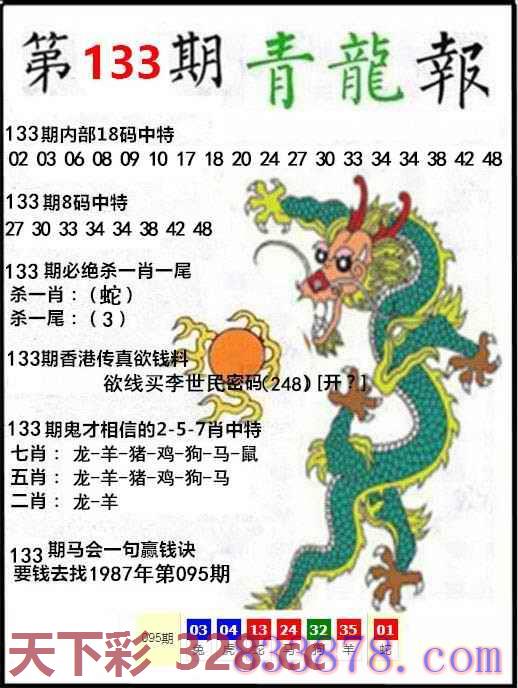 第133期青龍報
133期内部18码中特
02 03 06 08 09 10 17 18 20 24 27 30 33 34 34 38 42 48
133期8码中特
27 30 33 34 34 38 42 48
133期必绝杀一肖一尾
杀一肖：（蛇）
杀一尾：（3）
133期香港传真欲钱料
欲线买李世民密码(248)[开？]
133期鬼才相信的2-5-7肖中特
七肖：龙-羊-猪-鸡-狗-马-鼠
五肖：龙-羊-猪-鸡-狗-马
二肖：龙-羊
133期马会一句赢钱诀
要钱去找1987年第095期
095期 03 04 13 24 32 35 01
兔 虎 蛇 马 狗 羊 蛇
天下彩 328.cc
03878.com